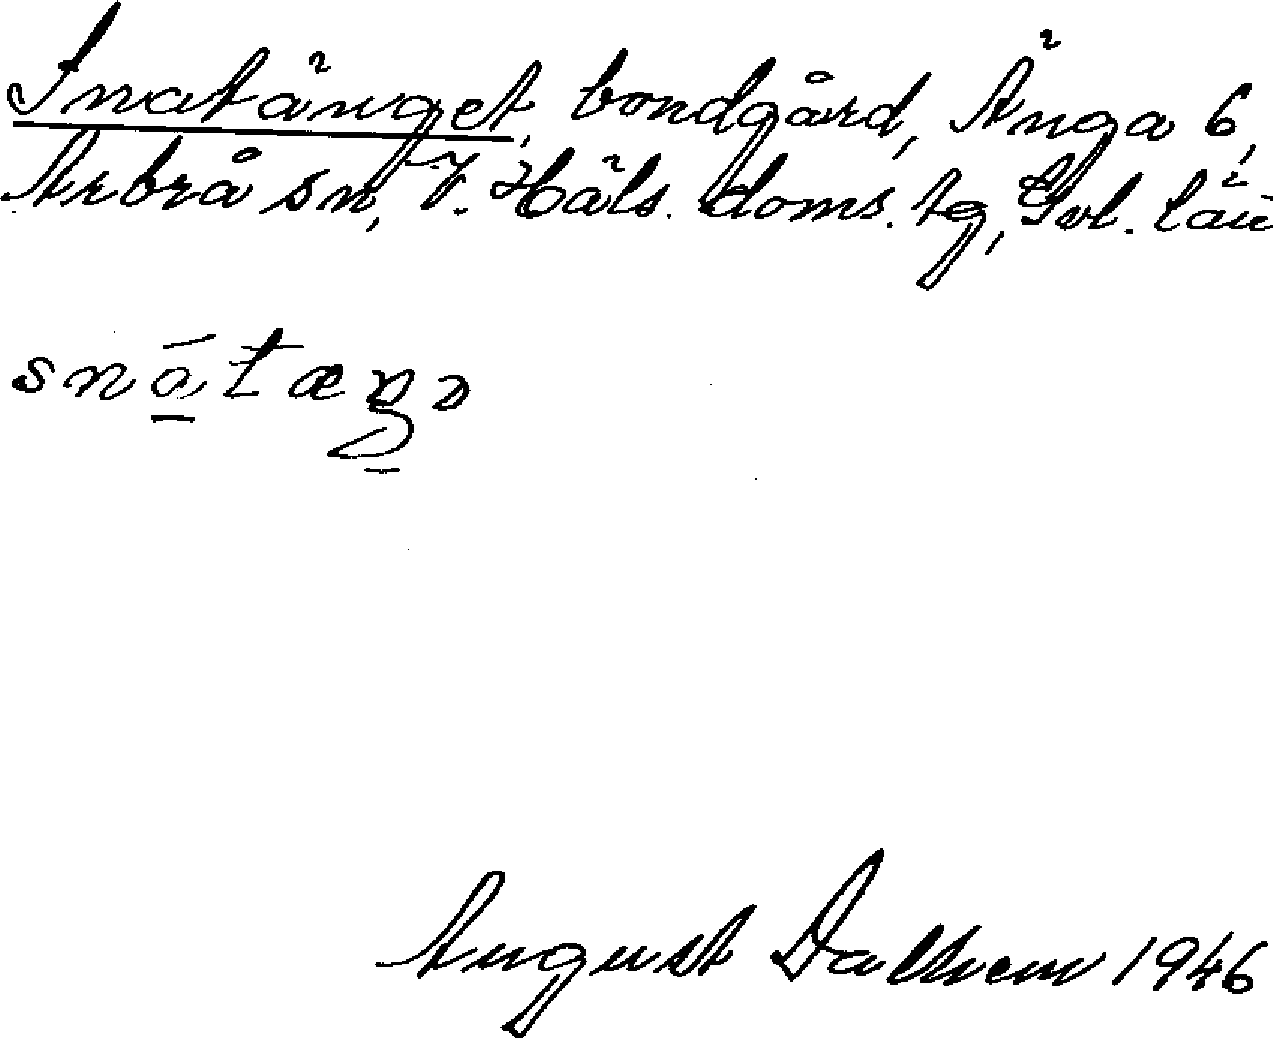 Snatänget, bondgård, Änga 6,
Arbrå sn, V. Häls. doms. tg, Gvl. län
August Dalhem 1946